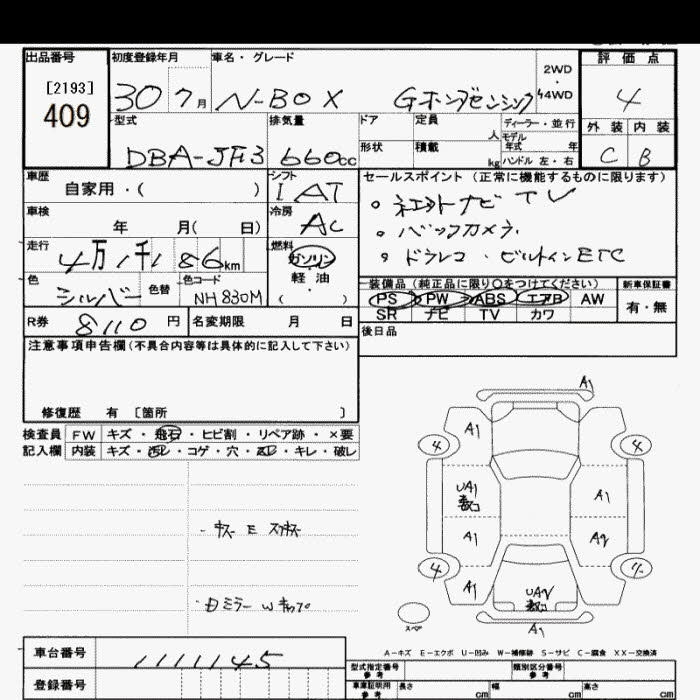 出品番号 初度登録年月 車名・グレード 2WD・4WD 評価点
[2193]
409
30 7月 N-BOX Gホンダセンシング 4
型式 排気量 ドア 定員 人 ディーラー・並行 外装 内装
DBA-JF3 660cc 形状 積載 kg モデル年式 年 ハンドル 左・右 C B
車歴 シフト セールスポイント(正常に機能するものに限ります)
自家用・( ) I AT
車検 冷房
年 月( 日) AC
。バックカメラ
走行 燃料
4万1千186km ガソリン
。ドラレコ・ビルトインETC
軽油
( )
色 色替 色コード
シルバー NH830M
装備品(純正品に限り○をつけてください) 新車保証書
PS PW ABS エアB AW 有・無
SR ナビ TV カワ
R券 8110円 名変期限 月 日
後日品
注意事項申告欄(不具合内容等は具体的に記入して下さい)
修復歴 有 [箇所 ]
検査員 FW キズ・飛石・ヒビ割・リペア跡・×要
記入欄 内装 キズ・汚レ・コゲ・穴・スレ・キレ・破レ
A1
A1
4 4
UA1 A1
A1 A2
4 4
A1
スペア A1
A-キズ E-エクボ U-凹み W-補修跡 S-サビ C-腐食 XX-交換済
車台番号 1111145
登録番号
型式指定番号 参考 類別区分番号 参考
車庫証明用 参考 長さ cm 幅 cm 高さ cm